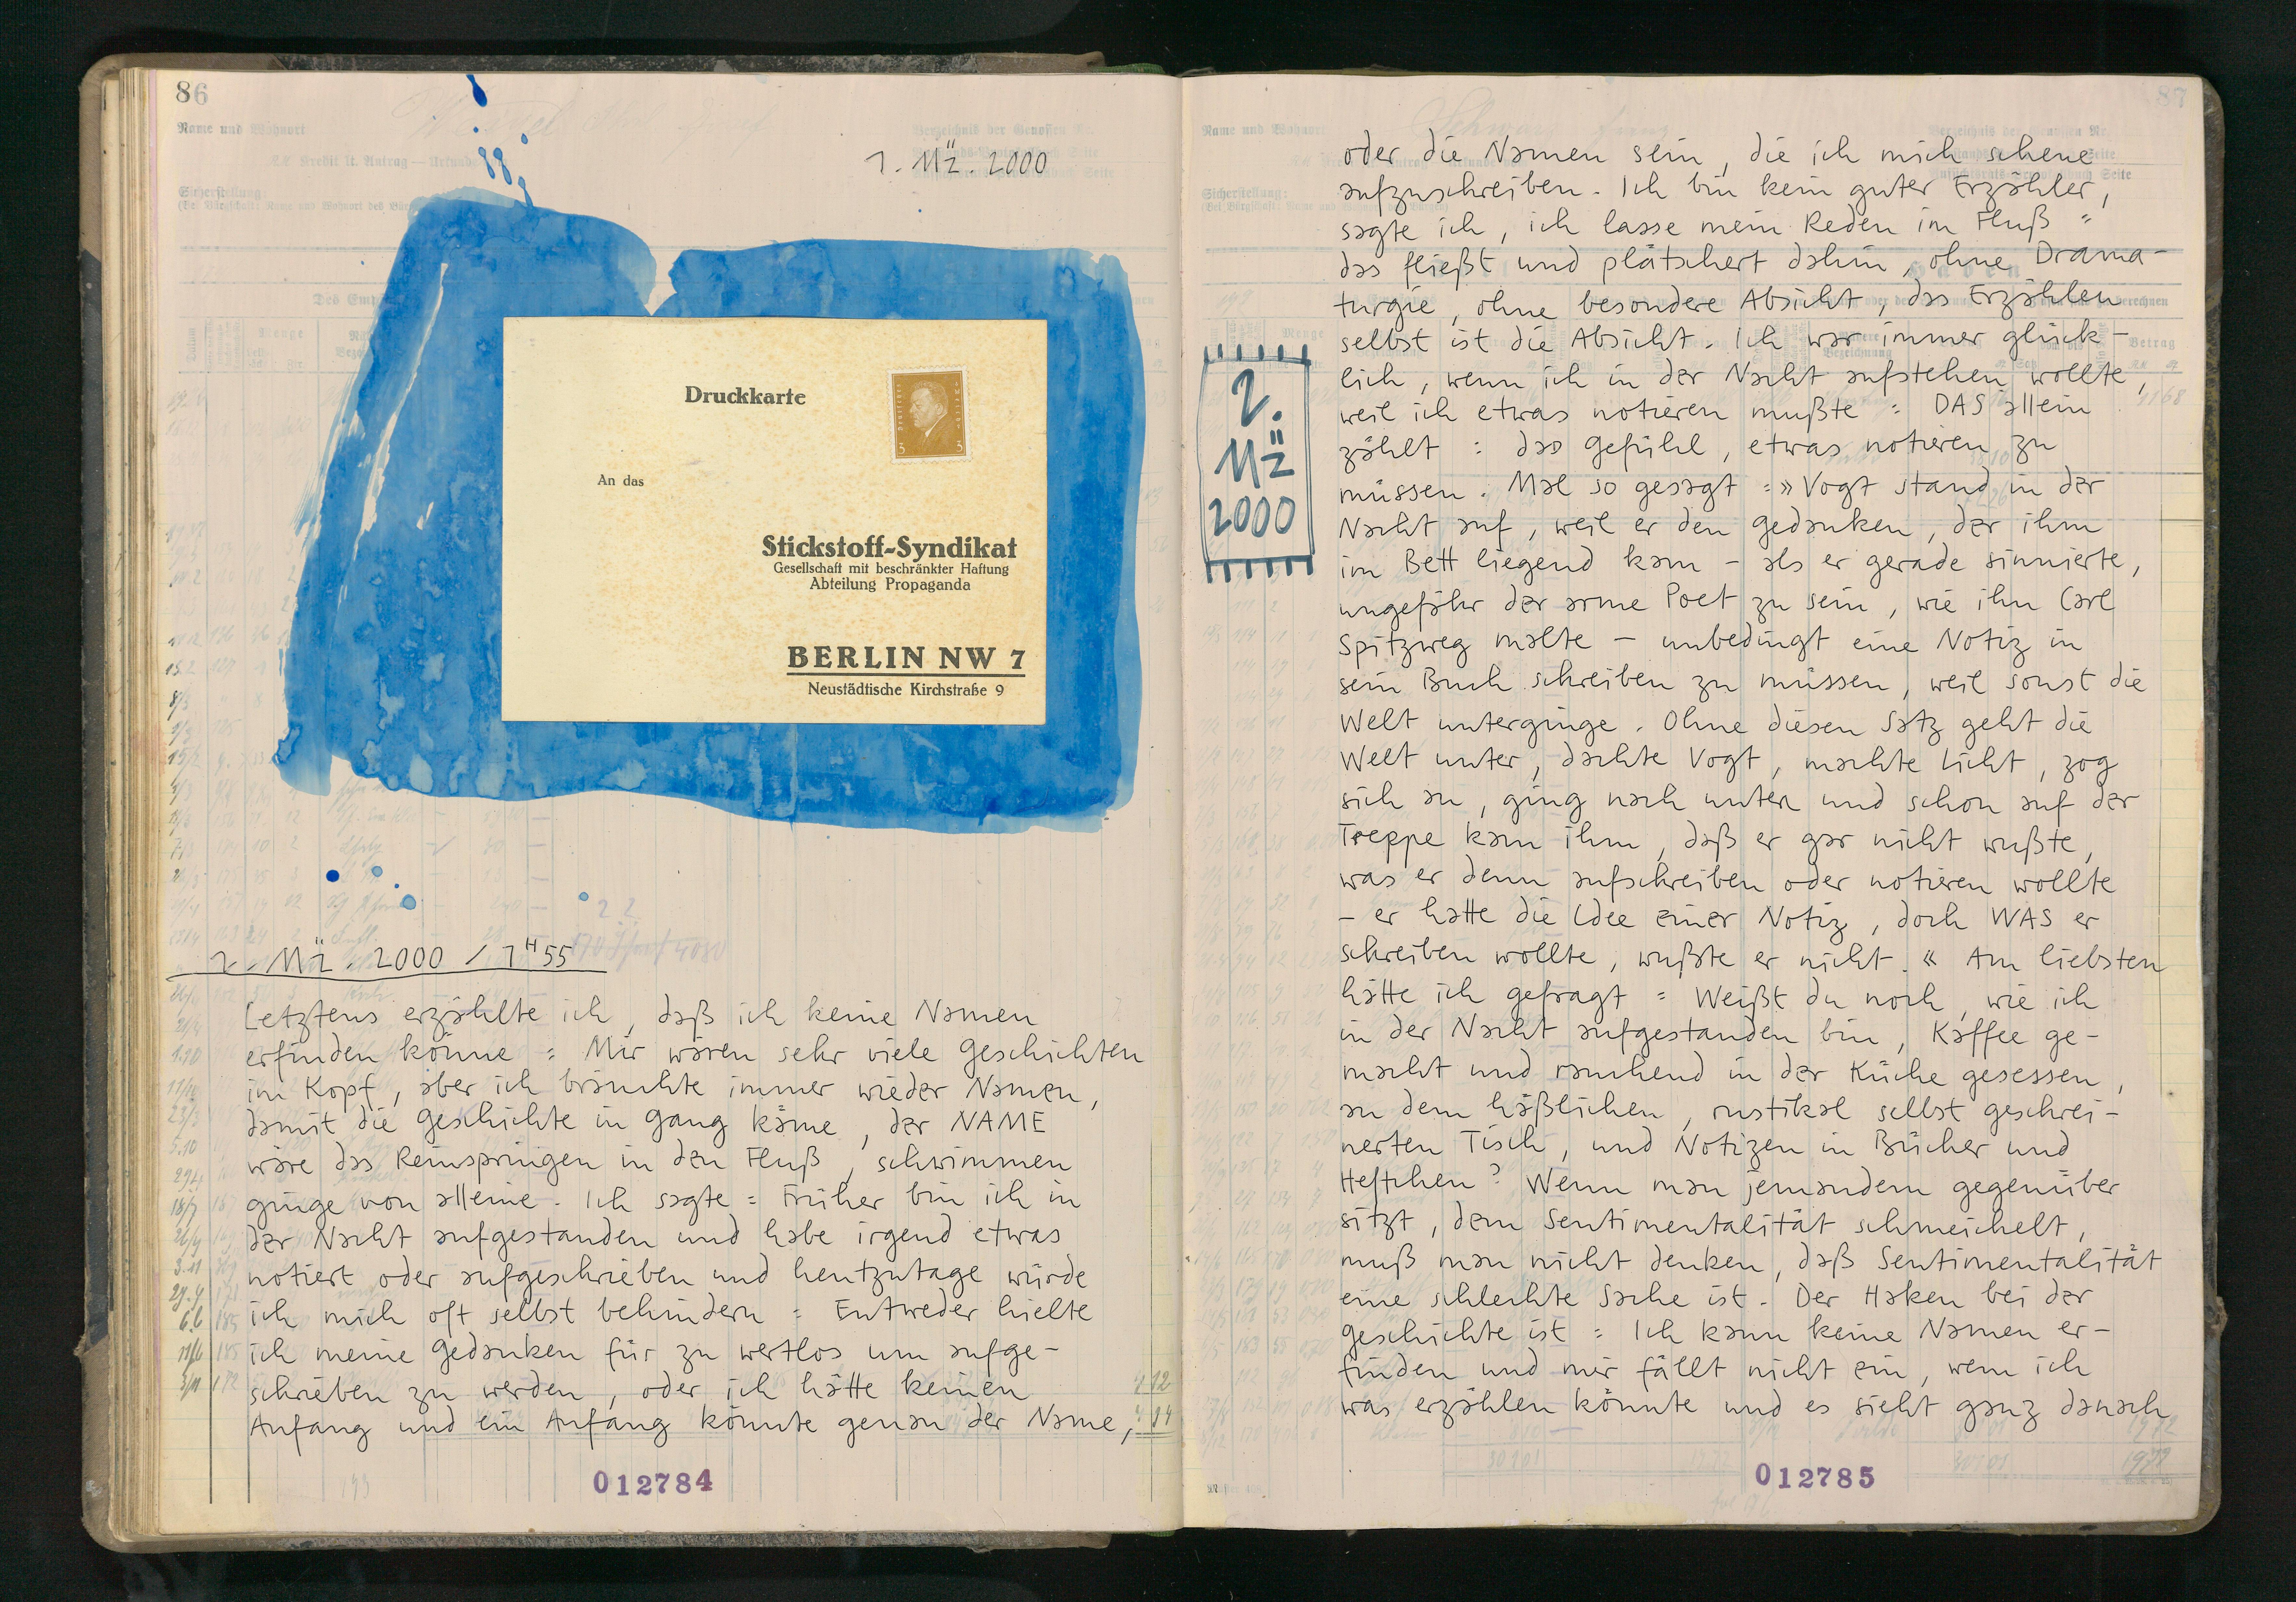 86
Name und Wohnort
1. Mz̈. 2000
Druckkarte
An das
Stickstoff-Syndikat
Gesellschaft mit beschränkter Haftung
Abteilung Propaganda
BERLIN NW 7
Neustädtische Kirchstraße 9
2. Mz̈. 2000 / 1H55
Letztens erzählte ich, daß ich keine Namen
erfinden könne : Mir wären sehr viele Geschichten
im Kopf, aber ich bräuchte immer wieder Namen,
damit die Geschichte in Gang käme, der NAME
wäre das Reinspringen in den Fluß, schwimmen
ginge von alleine. Ich sagte : Früher bin ich in
der Nacht aufgestanden und habe irgend etwas
notiert oder aufgeschrieben und heutzutage würde
ich mich oft selbst behindern : Entweder hielte
ich meine Gedanken für zu wertlos um aufge-
schrieben zu werden, oder ich hätte keinen
Anfang und ein Anfang könnte genau der Name,
012784
87
Name und Wohnort
oder die Namen sein, die ich mich scheue
aufzuschreiben. Ich bin kein guter Erzähler,
sagte ich, ich lasse mein Reden im Fluß :
das fließt und plätschert dahin, ohne Drama-
turgie, ohne besondere Absicht, das Erzählen
selbst ist die Absicht. Ich war immer glück-
lich, wenn ich in der Nacht aufstehen wollte,
weil ich etwas notieren mußte : DAS allein
zählt : das Gefühl, etwas notieren zu
müssen. Mal so gesagt : » Vogt stand in der
Nacht auf, weil er den Gedanken, der ihm
im Bett liegend kam – als er gerade sinnierte,
ungefähr der arme Poet zu sein, wie ihn Carl
Spitzweg malte – unbedingt eine Notiz in
sein Buch schreiben zu müssen, weil sonst die
Welt unterginge. Ohne diesen Satz geht die
Welt unter, dachte Vogt, machte Licht, zog
sich an, ging nach unten und schon auf der
Treppe kam ihm, daß er gar nicht wußte,
was er denn aufschreiben oder notieren wollte
– er hatte die Idee einer Notiz, doch WAS er
schreiben wollte, wußte er nicht. « Am liebsten
hätte ich gefragt : Weißt du noch, wie ich
in der Nacht aufgestanden bin, Kaffee ge-
macht und rauchend in der Küche gesessen,
an dem häßlichen, rustikal selbst geschrei-
nerten Tisch, und Notizen in Bücher und
Heftchen? Wenn man jemandem gegenüber
sitzt, dem Sentimentalität schmeichelt,
muß man nicht denken, daß Sentimentalität
eine schlechte Sache ist. Der Haken bei der
Geschichte ist : Ich kann keine Namen er-
finden und mir fällt nicht ein, wem ich
was erzählen könnte und es sieht ganz danach
2.
Mz̈
2000
012785